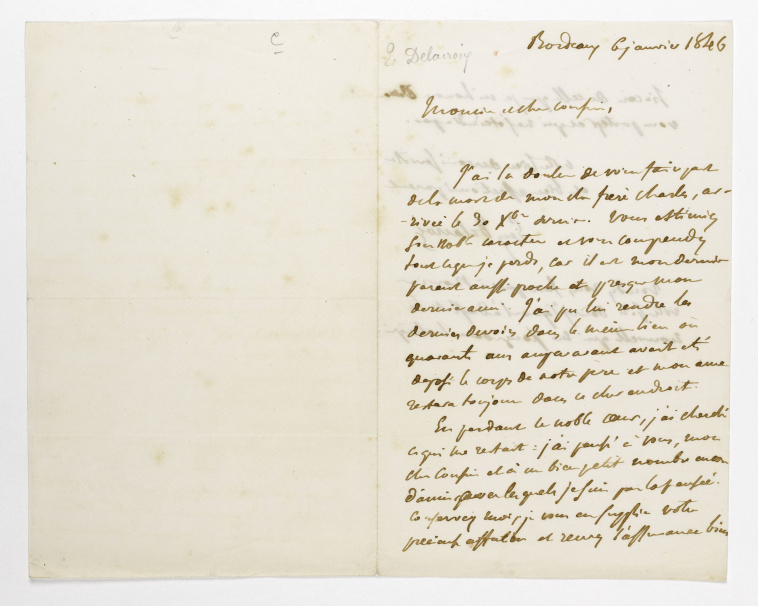 C
E. Delacroix
Bordeaux 6 janvier 1846
Monsieur et cher Cousin,
J'ai la douleur de vous faire part
de la mort de mon cher frère Charles, ar-
-rivée le 30 Xbre dernier. Vous estimiez
son noble caractère et vous comprendrez
tout ce que je perds, car il est mon dernier
parent aussi proche et presque mon
dernier ami. J'ai pu lui rendre les
derniers devoirs dans le même lieu où
quarante ans auparavant avait été
déposé le corps de notre père et mon âme
restera toujours dans ce cher endroit.
En perdant ce noble cœur, j'ai cherché
ce qui me restait : j'ai pensé à vous, mon
cher Cousin et à un bien petit nombre
d'amis avec lesquels je suis par la pensée.
Conservez moi, je vous en supplie votre
précieuse affection et recevez l'assurance bien